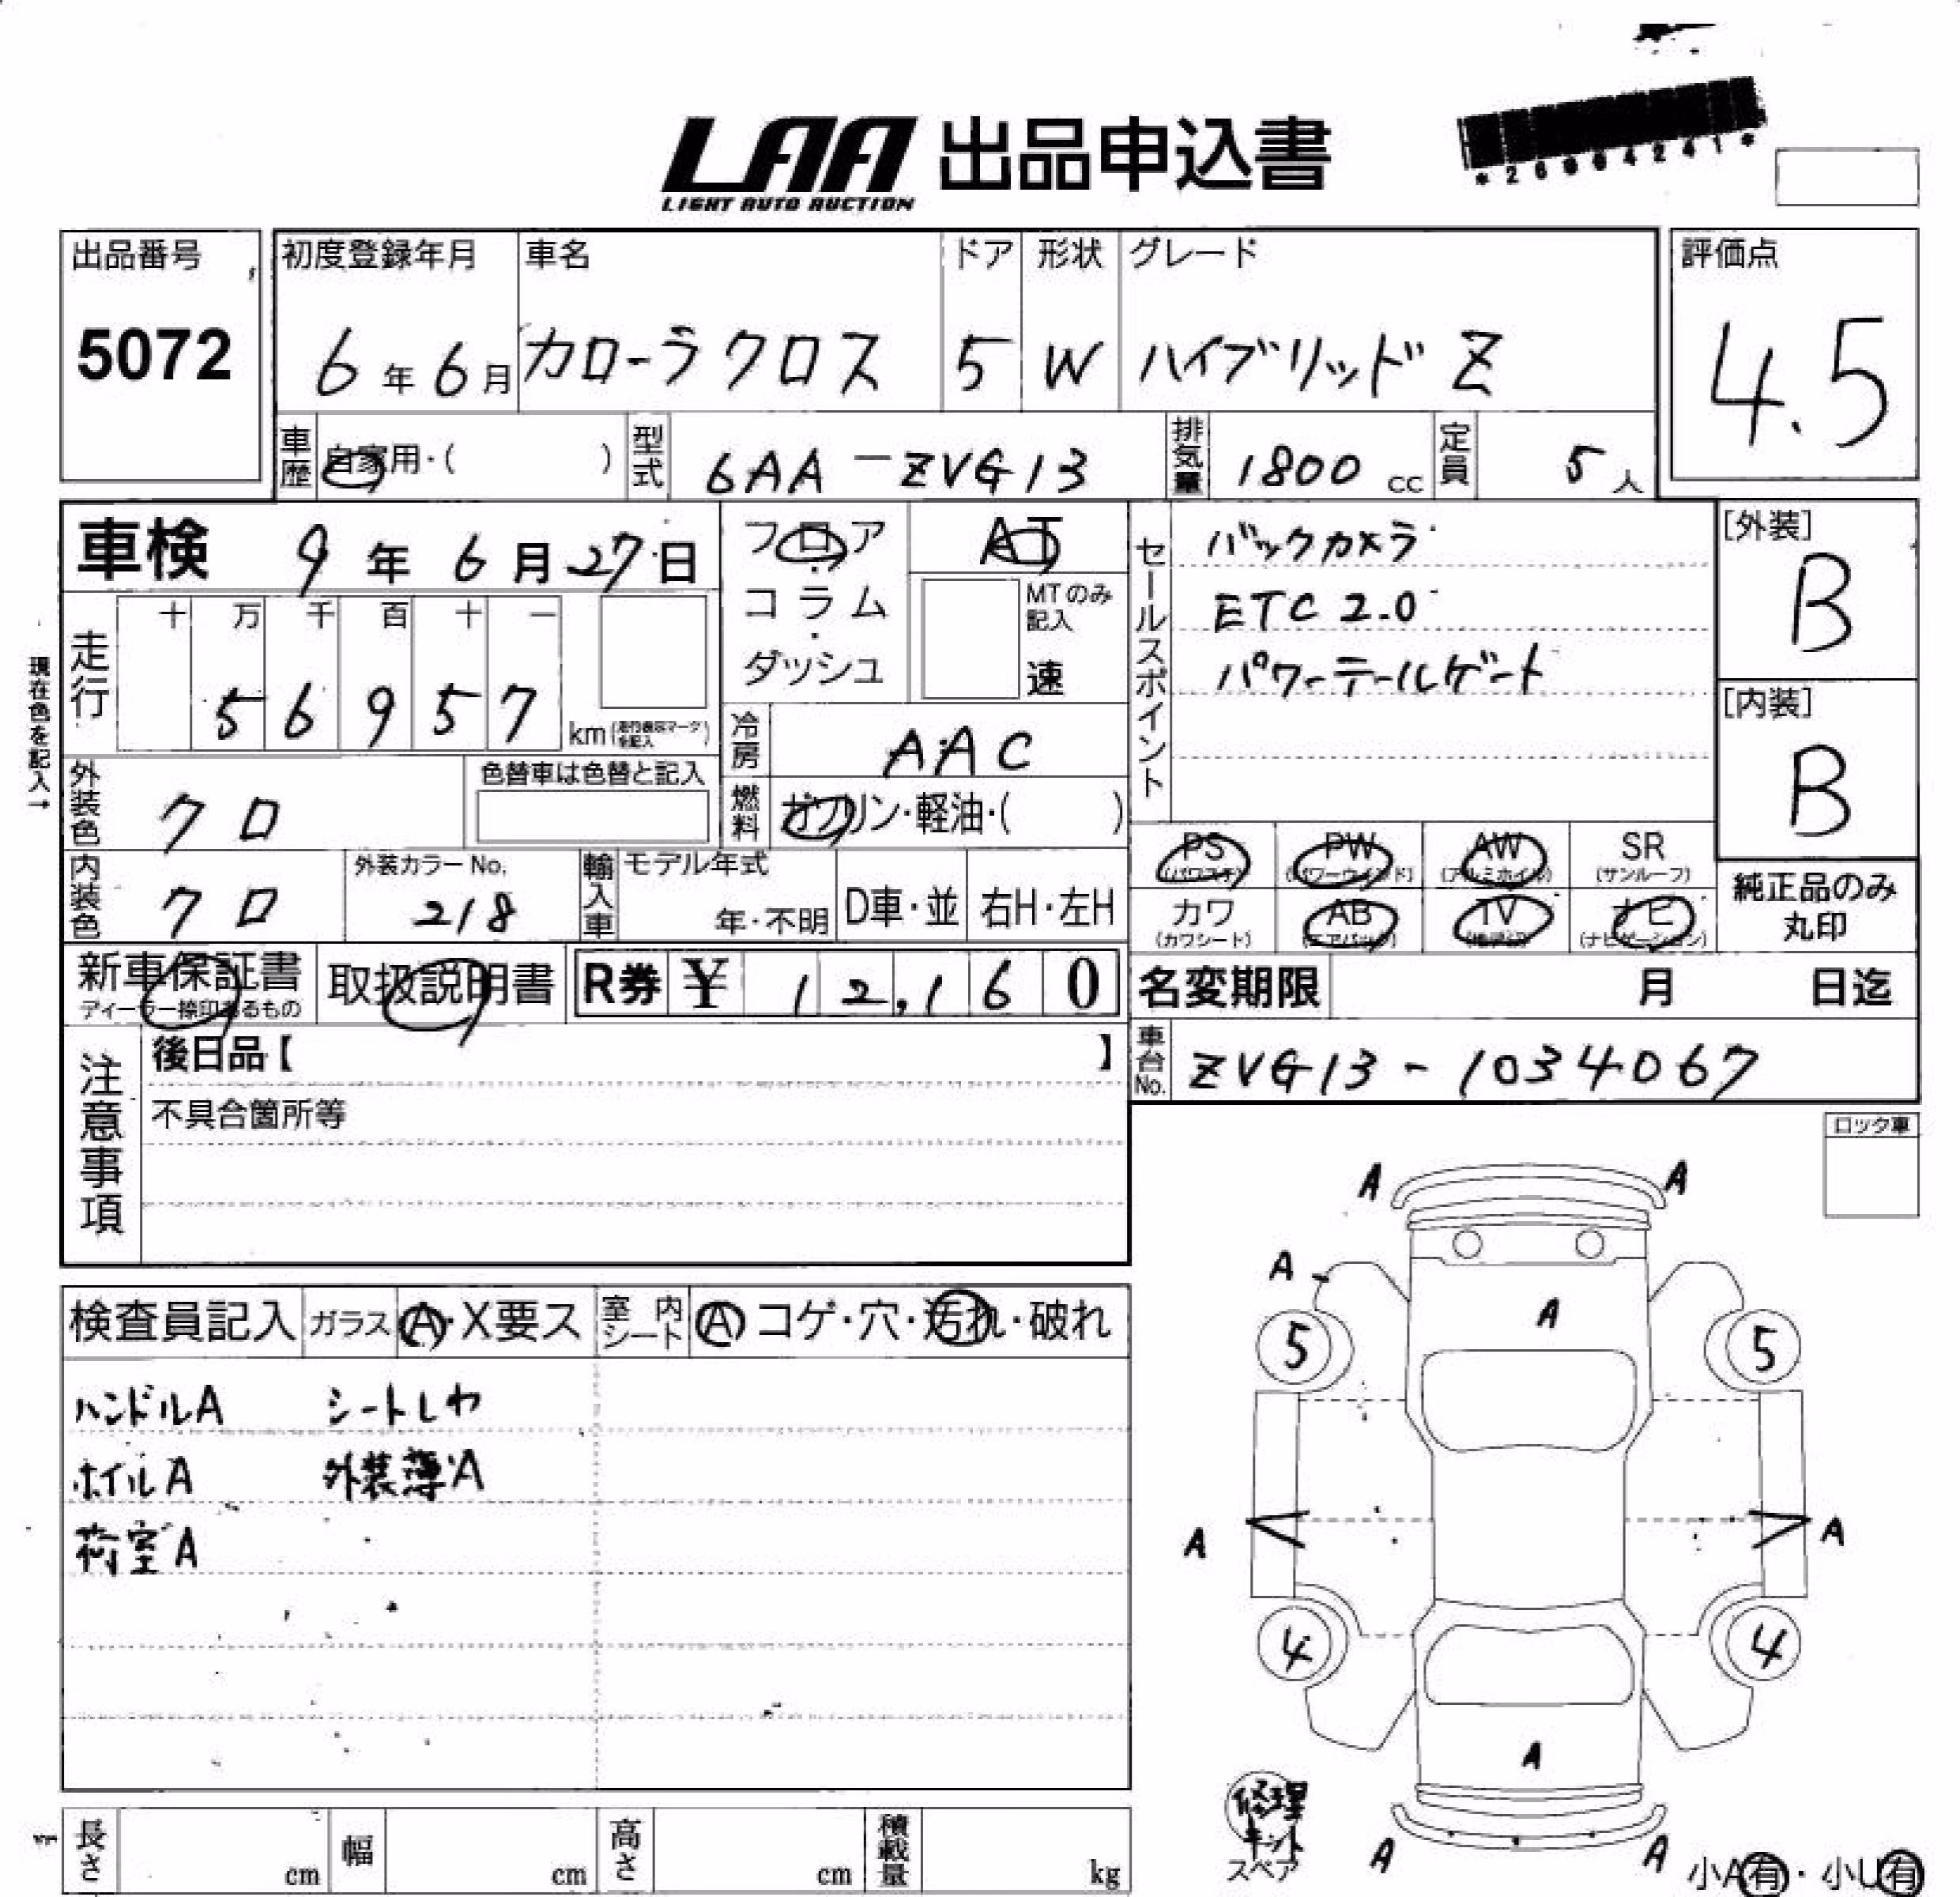 LAA 出品申込書
LIGHT AUTO AUCTION
出品番号
5072
初度登録年月
6年6月
車名
カローラクロス
ドア
5
形状
W
グレード
ハイブリッド Z
評価点
4.5
車歴
自家用・( )
型式
6AA-ZVG13
排気量
1800 cc
定員
5人
車検 9年6月27日
フロア・コラム・ダッシュ
AT
MTのみ記入
速
セールスポイント
バックカメラ
ETC2.0
パワーテールゲート
[外装]
B
[内装]
B
現在色を記入→
走行
十 万 千 百 十 一
5 6 9 5 7
km
冷房
AAC
燃料
ガソリン・軽油・( )
外装色
クロ
色替車は色替と記入
内装色
クロ
外装カラーNo.
218
輸入車
モデル年式
年・不明
D車・並
右H・左H
PS
(パワステ)
PW
(パワーウインド)
AW
(アルミホイル)
SR
(サンルーフ)
カワ
(カワシート)
AB
(エアバック)
TV
ナビ
(ナビゲーション)
純正品のみ
丸印
新車保証書
ディーラー捺印あるもの
取扱説明書
R券 ¥ 12,160
名変期限 月 日迄
車台No.
ZVG13-1034067
注意事項
後日品【 】
不具合箇所等
ロック車
検査員記入
ガラス
A・X要ス
室内シート
A コゲ・穴・汚れ・破れ
ハンドルA シートしわ
ホイルA 外装薄A
荷室A
A A
A
A
5 5
A A
4 4
A
A A
修理キット
スペア
小A有・小U有
長さ cm
幅 cm
高さ cm
積載量 kg